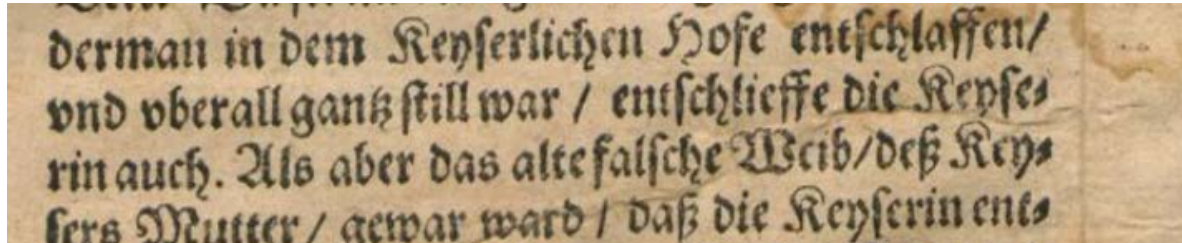 derman in dem Keyserlichen Hofe entschlaffen/
vnd vberall gantz still war / entschlieffe die Keyse-
rin auch. Als aber das alte falsche Weib/deß Key-
sers Mutter / gewar ward / daß die Keyserin ent-